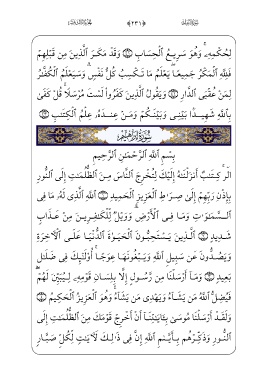 لِحُكْمِهِۦ وَهُوَ سَرِيعُ ٱلْحِسَابِ ۝ وَقَدْ مَكَرَ ٱلَّذِينَ مِن قَبْلِهِمْ
فَلِلَّهِ ٱلْمَكْرُ جَمِيعًا ۖ يَعْلَمُ مَا تَكْسِبُ كُلُّ نَفْسٍ ۗ وَسَيَعْلَمُ ٱلْكُفَّٰرُ
لِمَنْ عُقْبَى ٱلدَّارِ ۝ وَيَقُولُ ٱلَّذِينَ كَفَرُوا۟ لَسْتَ مُرْسَلًا ۚ قُلْ كَفَىٰ
بِٱللَّهِ شَهِيدًۢا بَيْنِى وَبَيْنَكُمْ وَمَنْ عِندَهُۥ عِلْمُ ٱلْكِتَٰبِ ۝
سُورَةُ إِبْرَاهِيمَ
بِسْمِ ٱللَّهِ ٱلرَّحْمَٰنِ ٱلرَّحِيمِ
الٓر ۚ كِتَٰبٌ أَنزَلْنَٰهُ إِلَيْكَ لِتُخْرِجَ ٱلنَّاسَ مِنَ ٱلظُّلُمَٰتِ إِلَى ٱلنُّورِ
بِإِذْنِ رَبِّهِمْ إِلَىٰ صِرَٰطِ ٱلْعَزِيزِ ٱلْحَمِيدِ ۝ ٱللَّهِ ٱلَّذِى لَهُۥ مَا فِى
ٱلسَّمَٰوَٰتِ وَمَا فِى ٱلْأَرْضِ ۗ وَوَيْلٌ لِّلْكَٰفِرِينَ مِنْ عَذَابٍ
شَدِيدٍ ۝ ٱلَّذِينَ يَسْتَحِبُّونَ ٱلْحَيَوٰةَ ٱلدُّنْيَا عَلَى ٱلْأٓخِرَةِ
وَيَصُدُّونَ عَن سَبِيلِ ٱللَّهِ وَيَبْغُونَهَا عِوَجًا ۚ أُو۟لَٰٓئِكَ فِى ضَلَٰلٍۭ
بَعِيدٍ ۝ وَمَآ أَرْسَلْنَا مِن رَّسُولٍ إِلَّا بِلِسَانِ قَوْمِهِۦ لِيُبَيِّنَ لَهُمْ ۖ
فَيُضِلُّ ٱللَّهُ مَن يَشَآءُ وَيَهْدِى مَن يَشَآءُ ۚ وَهُوَ ٱلْعَزِيزُ ٱلْحَكِيمُ ۝
وَلَقَدْ أَرْسَلْنَا مُوسَىٰ بِـَٔايَٰتِنَآ أَنْ أَخْرِجْ قَوْمَكَ مِنَ ٱلظُّلُمَٰتِ إِلَى
ٱلنُّورِ وَذَكِّرْهُم بِأَيَّىٰمِ ٱللَّهِ ۚ إِنَّ فِى ذَٰلِكَ لَءَايَٰتٍ لِّكُلِّ صَبَّارٍ